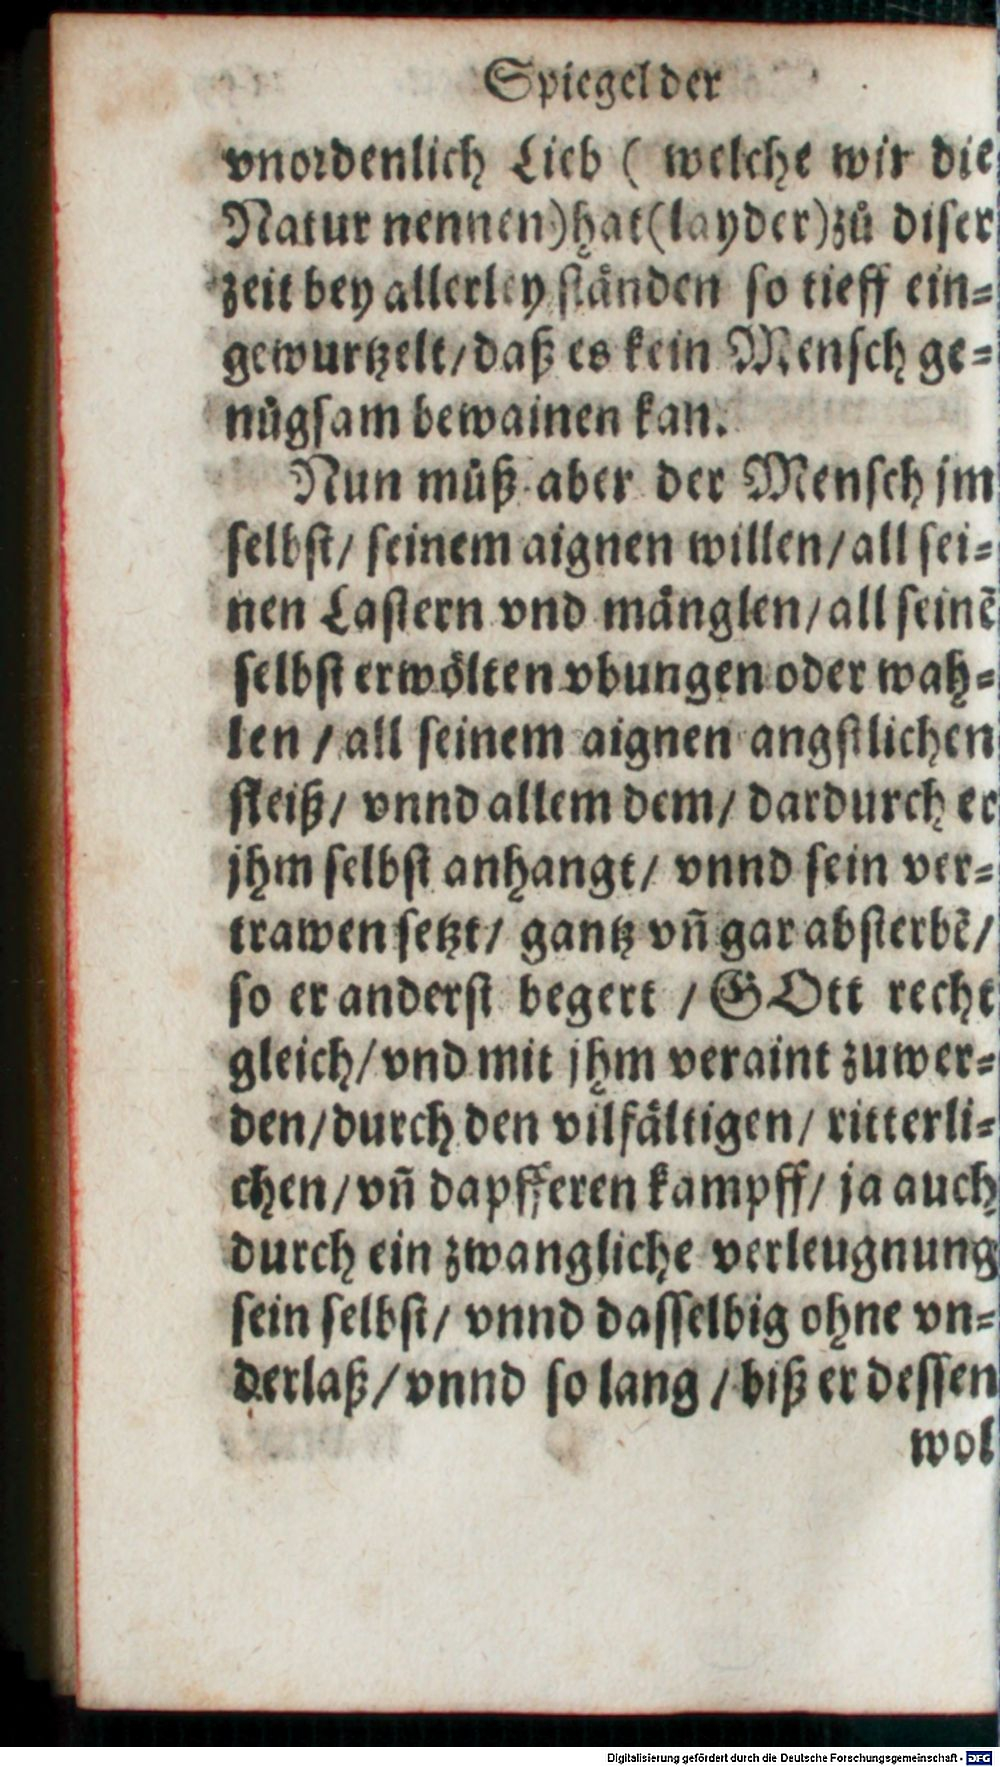 Spiegel der
vnordenlich Lieb ( welche wir die
Natur nennen)hat(layder)zů diser
zeit bey allerley ständen so tieff ein=
gewurtzelt/daß es kein Mensch ge=
nůgsam bewainen kan.
Nun můß aber der Mensch jm
selbst/ seinem aignen willen/all sei=
nen Lastern vnd mänglen/all seinē
selbst erwölten vbungen oder wah=
len /all seinem aignen angstlichen
fleiß/ vnnd allem dem/ dardurch er
jhm selbst anhangt/ vnnd sein ver=
trawen setzt/ gantz vñ gar absterbē/
so er anderst begert /GOtt recht
gleich/vnd mit jhm veraint zuwer=
den/durch den vilfältigen/ ritterli=
chen/vñ dapfferen kampff/ ja auch
durch ein zwangliche verleugnung
sein selbst/ vnnd dasselbig ohne vn=
derlaß/vnnd so lang /biß er dessen
wol
Digitalisierung gefördert durch die Deutsche Forschungsgemeinschaft - DFG